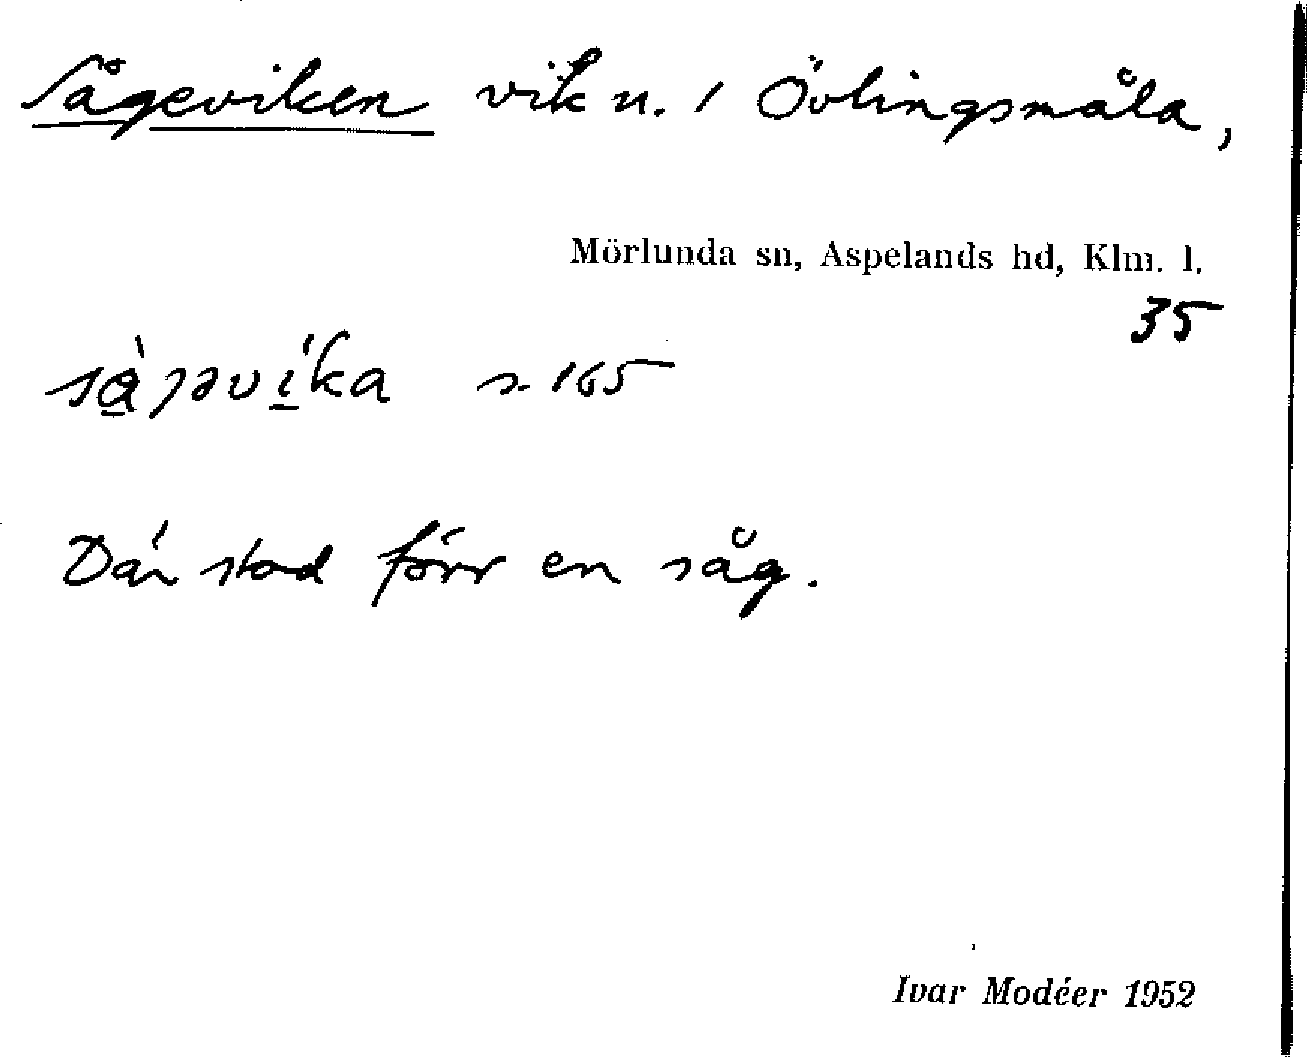 Sågeviken vik n. / Övlingsmåla,
Mörlunda sn, Aspelands hd, Klm. l.
35
165
Där stod förr en såg.
Ivar Modéer 1952